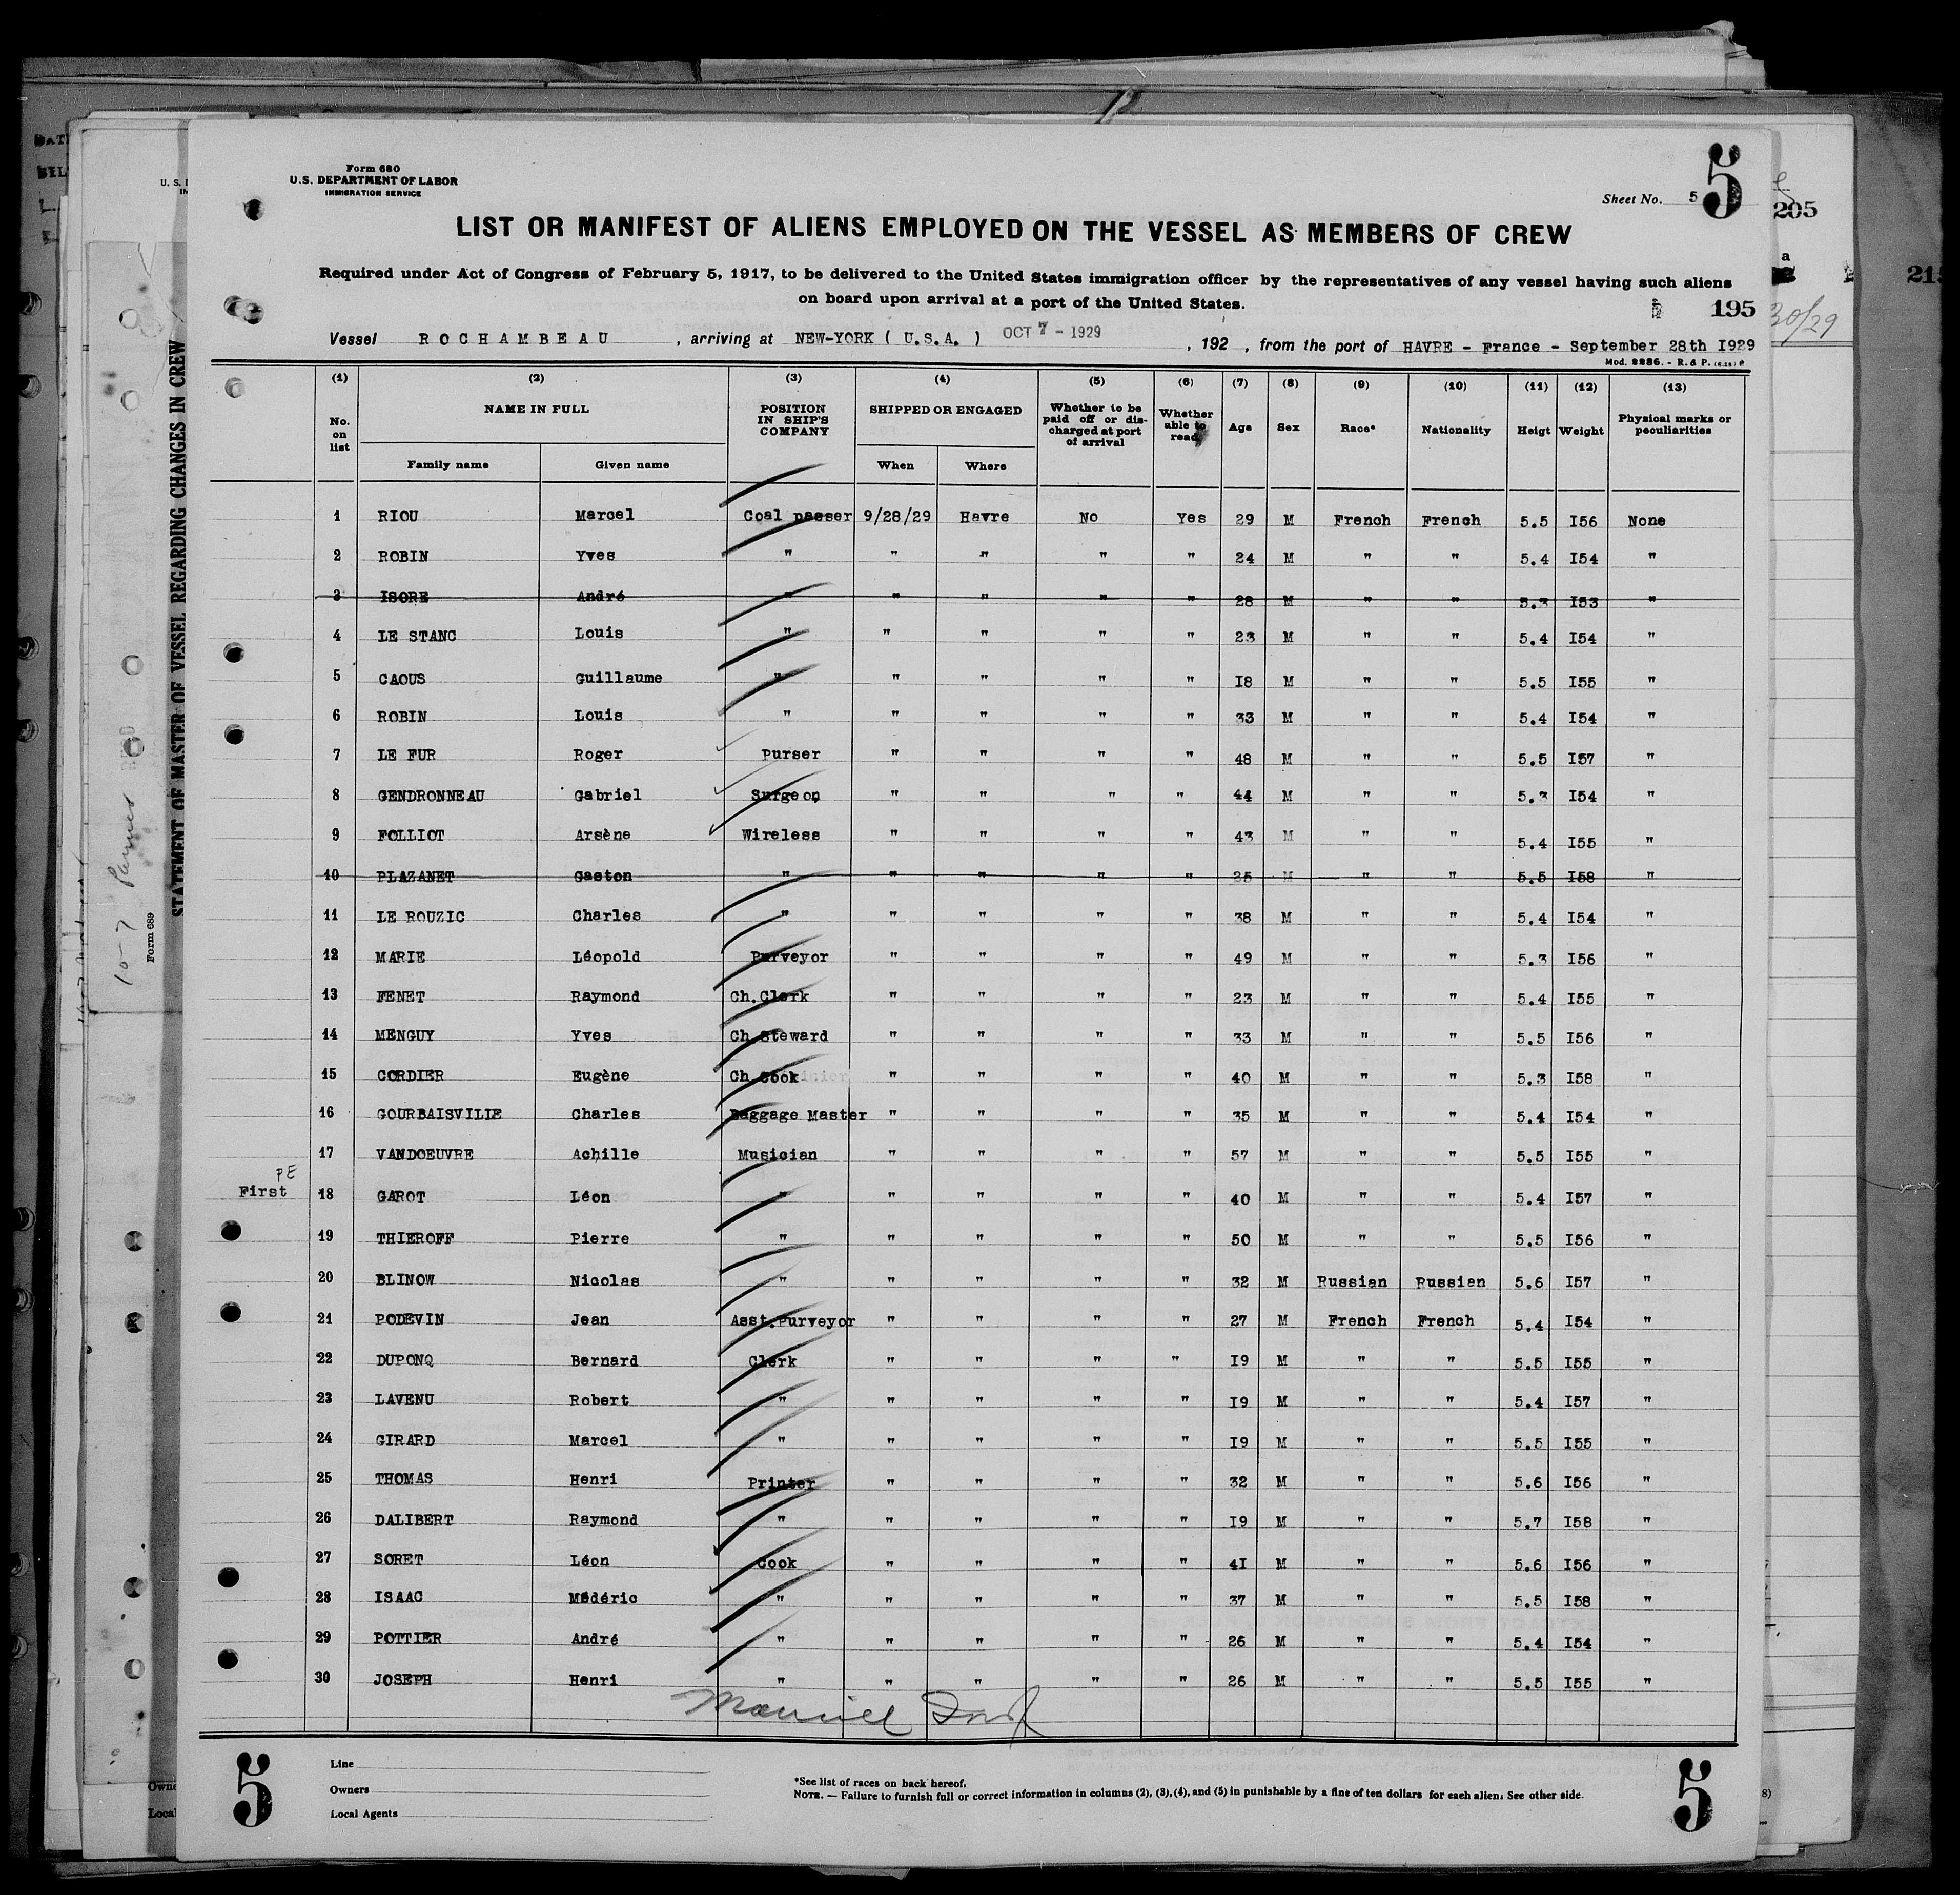 12
Form 680
U.S. DEPARTMENT OF LABOR
IMMIGRATION SERVICE
Sheet No. 5
5
205
LIST OR MANIFEST OF ALIENS EMPLOYED ON THE VESSEL AS MEMBERS OF CREW
Required under Act of Congress of February 5, 1917, to be delivered to the United States immigration officer by the representatives of any vessel having such aliens
on board upon arrival at a port of the United States.
195
30/29
Vessel ROCHAMBEAU , arriving at NEW-YORK ( U.S.A. ) OCT 7 - 1929 , 192 , from the port of HAVRE - France - September 28th I929
Mod. 2286. - R. & P.
(1) (2) (3) (4) (5) (6) (7) (8) (9) (10) (11) (12) (13)
No. on list NAME IN FULL POSITION IN SHIP'S COMPANY SHIPPED OR ENGAGED Whether to be paid off or discharged at port of arrival Whether able to read Age Sex Race* Nationality Heigt Weight Physical marks or peculiarities
Family name Given name When Where
1 RIOU Marcel Coal passer 9/28/29 Havre No Yes 29 M French French 5.5 I56 None
2 ROBIN Yves " " " " " 24 M " " 5.4 I54 "
3 ISORE André " " " " " 28 M " " 5.3 I53 "
4 LE STANC Louis " " " " " 23 M " " 5.4 I54 "
5 CAOUS Guillaume " " " " " I8 M " " 5.5 I55 "
6 ROBIN Louis " " " " " 33 M " " 5.4 I54 "
7 LE FUR Roger Purser " " " " 48 M " " 5.5 I57 "
8 GENDRONNEAU Gabriel Surgeon " " " " 44 M " " 5.3 I54 "
9 FOLLIOT Arsène Wireless " " " " 43 M " " 5.4 I55 "
10 PLAZANET Gaston " " " " " 25 M " " 5.5 I58 "
11 LE ROUZIC Charles " " " " " 38 M " " 5.4 I54 "
12 MARIE Léopold Purveyor " " " " 49 M " " 5.3 I56 "
13 FENET Raymond Ch.Clerk " " " " 23 M " " 5.4 I55 "
14 MENGUY Yves Ch Steward " " " " 33 M " " 5.5 I56 "
15 CORDIER Eugène Ch Cook " " " " 40 M " " 5.3 I58 "
16 GOURBAISVILLE Charles Baggage Master " " " " 35 M " " 5.4 I54 "
17 VANDOEUVRE Achille Musician " " " " 57 M " " 5.5 I55 "
PE
First 18 GAROT Léon " " " " " 40 M " " 5.4 I57 "
19 THIEROFF Pierre " " " " " 50 M " " 5.5 I56 "
20 BLINOW Nicolas " " " " " 32 M Russian Russian 5.6 I57 "
21 PODEVIN Jean Asst.Purveyor " " " " 27 M French French 5.4 I54 "
22 DUPONQ Bernard Clerk " " " " I9 M " " 5.5 I55 "
23 LAVENU Robert " " " " " I9 M " " 5.4 I57 "
24 GIRARD Marcel " " " " " I9 M " " 5.5 I55 "
25 THOMAS Henri Printer " " " " 32 M " " 5.6 I56 "
26 DALIBERT Raymond " " " " " I9 M " " 5.7 I58 "
27 SORET Léon Cook " " " " 4I M " " 5.6 I56 "
28 ISAAC Médéric " " " " " 37 M " " 5.5 I58 "
29 POTTIER André " " " " " 26 M " " 5.4 I54 "
30 JOSEPH Henri " " " " " 26 M " " 5.5 I55 "
5
Line
Owners
Local Agents
*See list of races on back hereof.
NOTE. — Failure to furnish full or correct information in columns (2), (3), (4), and (5) in punishable by a fine of ten dollars for each alien. See other side.
5
STATEMENT OF MASTER OF VESSEL REGARDING CHANGES IN CREW
Form 689
10-7